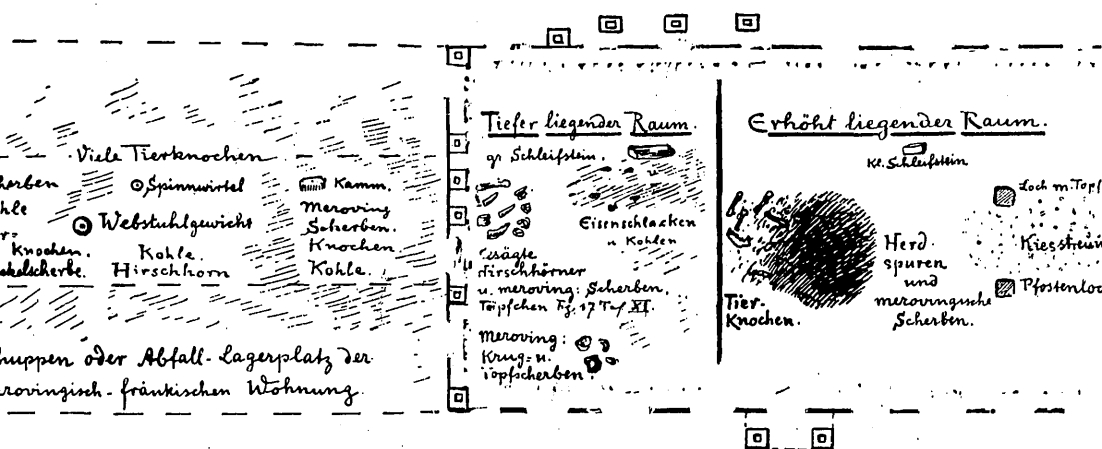 Viele Tierknochen
Spinnwirtel
Webstuhlgewicht
Kohle.
Hirschhorn
Knochen.
Kamm.
Meroving
Scherben.
Knochen.
Kohle.
huppen oder Abfall-Lagerplatz der
erovingisch-fränkischen Wohnung.
Tiefer liegender Raum.
gr. Schleifstein.
Eisenschlacken
u. Kohlen
Gesägte
Hirschhörner
u. meroving: Scherben.
Töpfchen Fg. 17 Taf XI.
Meroving:
Krug- u.
Topfscherben.
Erhöht liegender Raum.
Kl. Schleifstein
Tier-
Knochen.
Herd-
spuren
und
merovingische
Scherben.
Loch m. Topf
Kiesstreuu
Pfostenloc